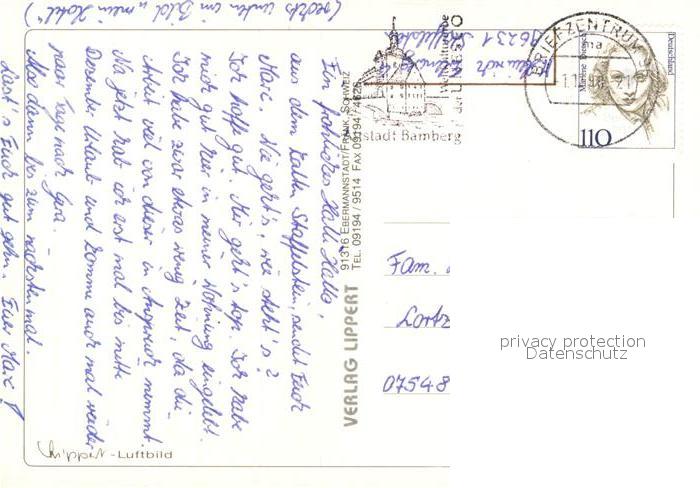 (rechts unten im Bild mein Hotel!)
Ein fröhliches Halli Hallo,
aus dem kalten Staffelstein, sendet Euch
Marc. Wie geht's, wie steht's?
Ich hoffe gut. Mir geht's top. Ich habe
mich gut hier in meiner Wohnung eingelebt.
Ich habe zwar etwas wenig Zeit, da die
Arbeit viel von dieser in Anspruch nimmt.
Na jetzt hab ich erst mal bis mitte
Dezember Urlaub und komme auch mal wieder
paar Tage nach Gera.
Also dann bis zum nächsten mal.
Lasst's Euch gut gehn. Euer
96231 Staffelstein
stadt Bamberg
Welterbe
der UNESCO
BRIEFZENTRUM
Deutschland
Marlene Dietrich
110
VERLAG LIPPERT
91316 EBERMANNSTADT/FRÄNK. SCHWEIZ
TEL. 09194 / 9514 FAX 09194 / 4626
Fam.
07548
Lippert-Luftbild
privacy protection
Datenschutz